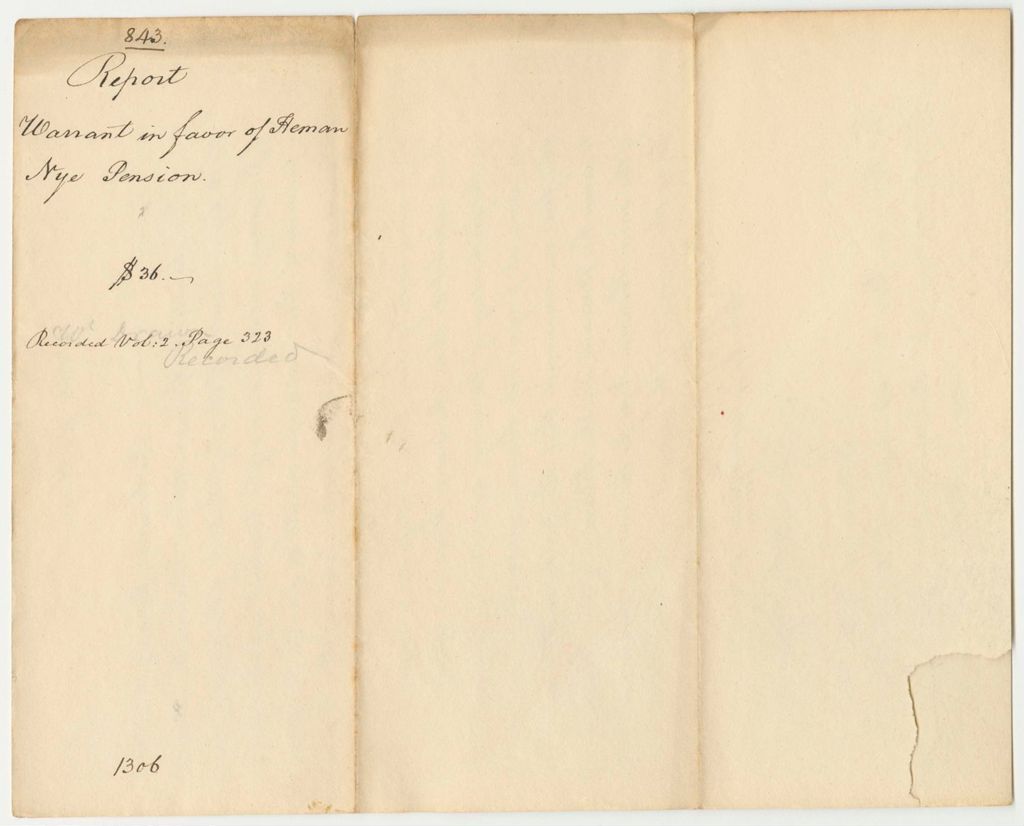 843.
Report
Warrant in favor of Heman
Nye Pension.
$36.
Recorded Vol: 2. Page 323
Recorded
1306